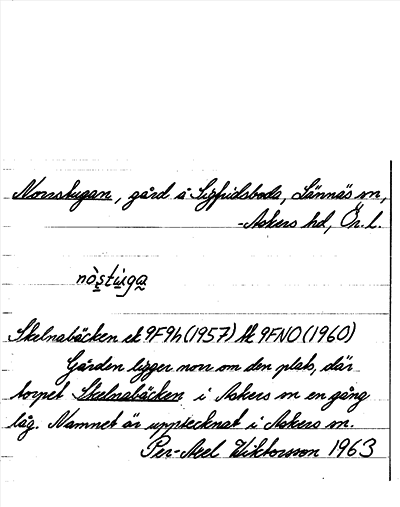 Norrstugan, gård å Sigfridsboda, Lännäs sn,
Askers hd, Ör. l.
nòstùga
Skelnabäcken ek 9F9h (1957) tk 9FNO (1960)
Gården ligger norr om den plats, där
torpet Skelnabäcken i Askers sn en gång
låg. Namnet är upptecknat i Askers sn.
Per-Axel Wiktorsson 1963